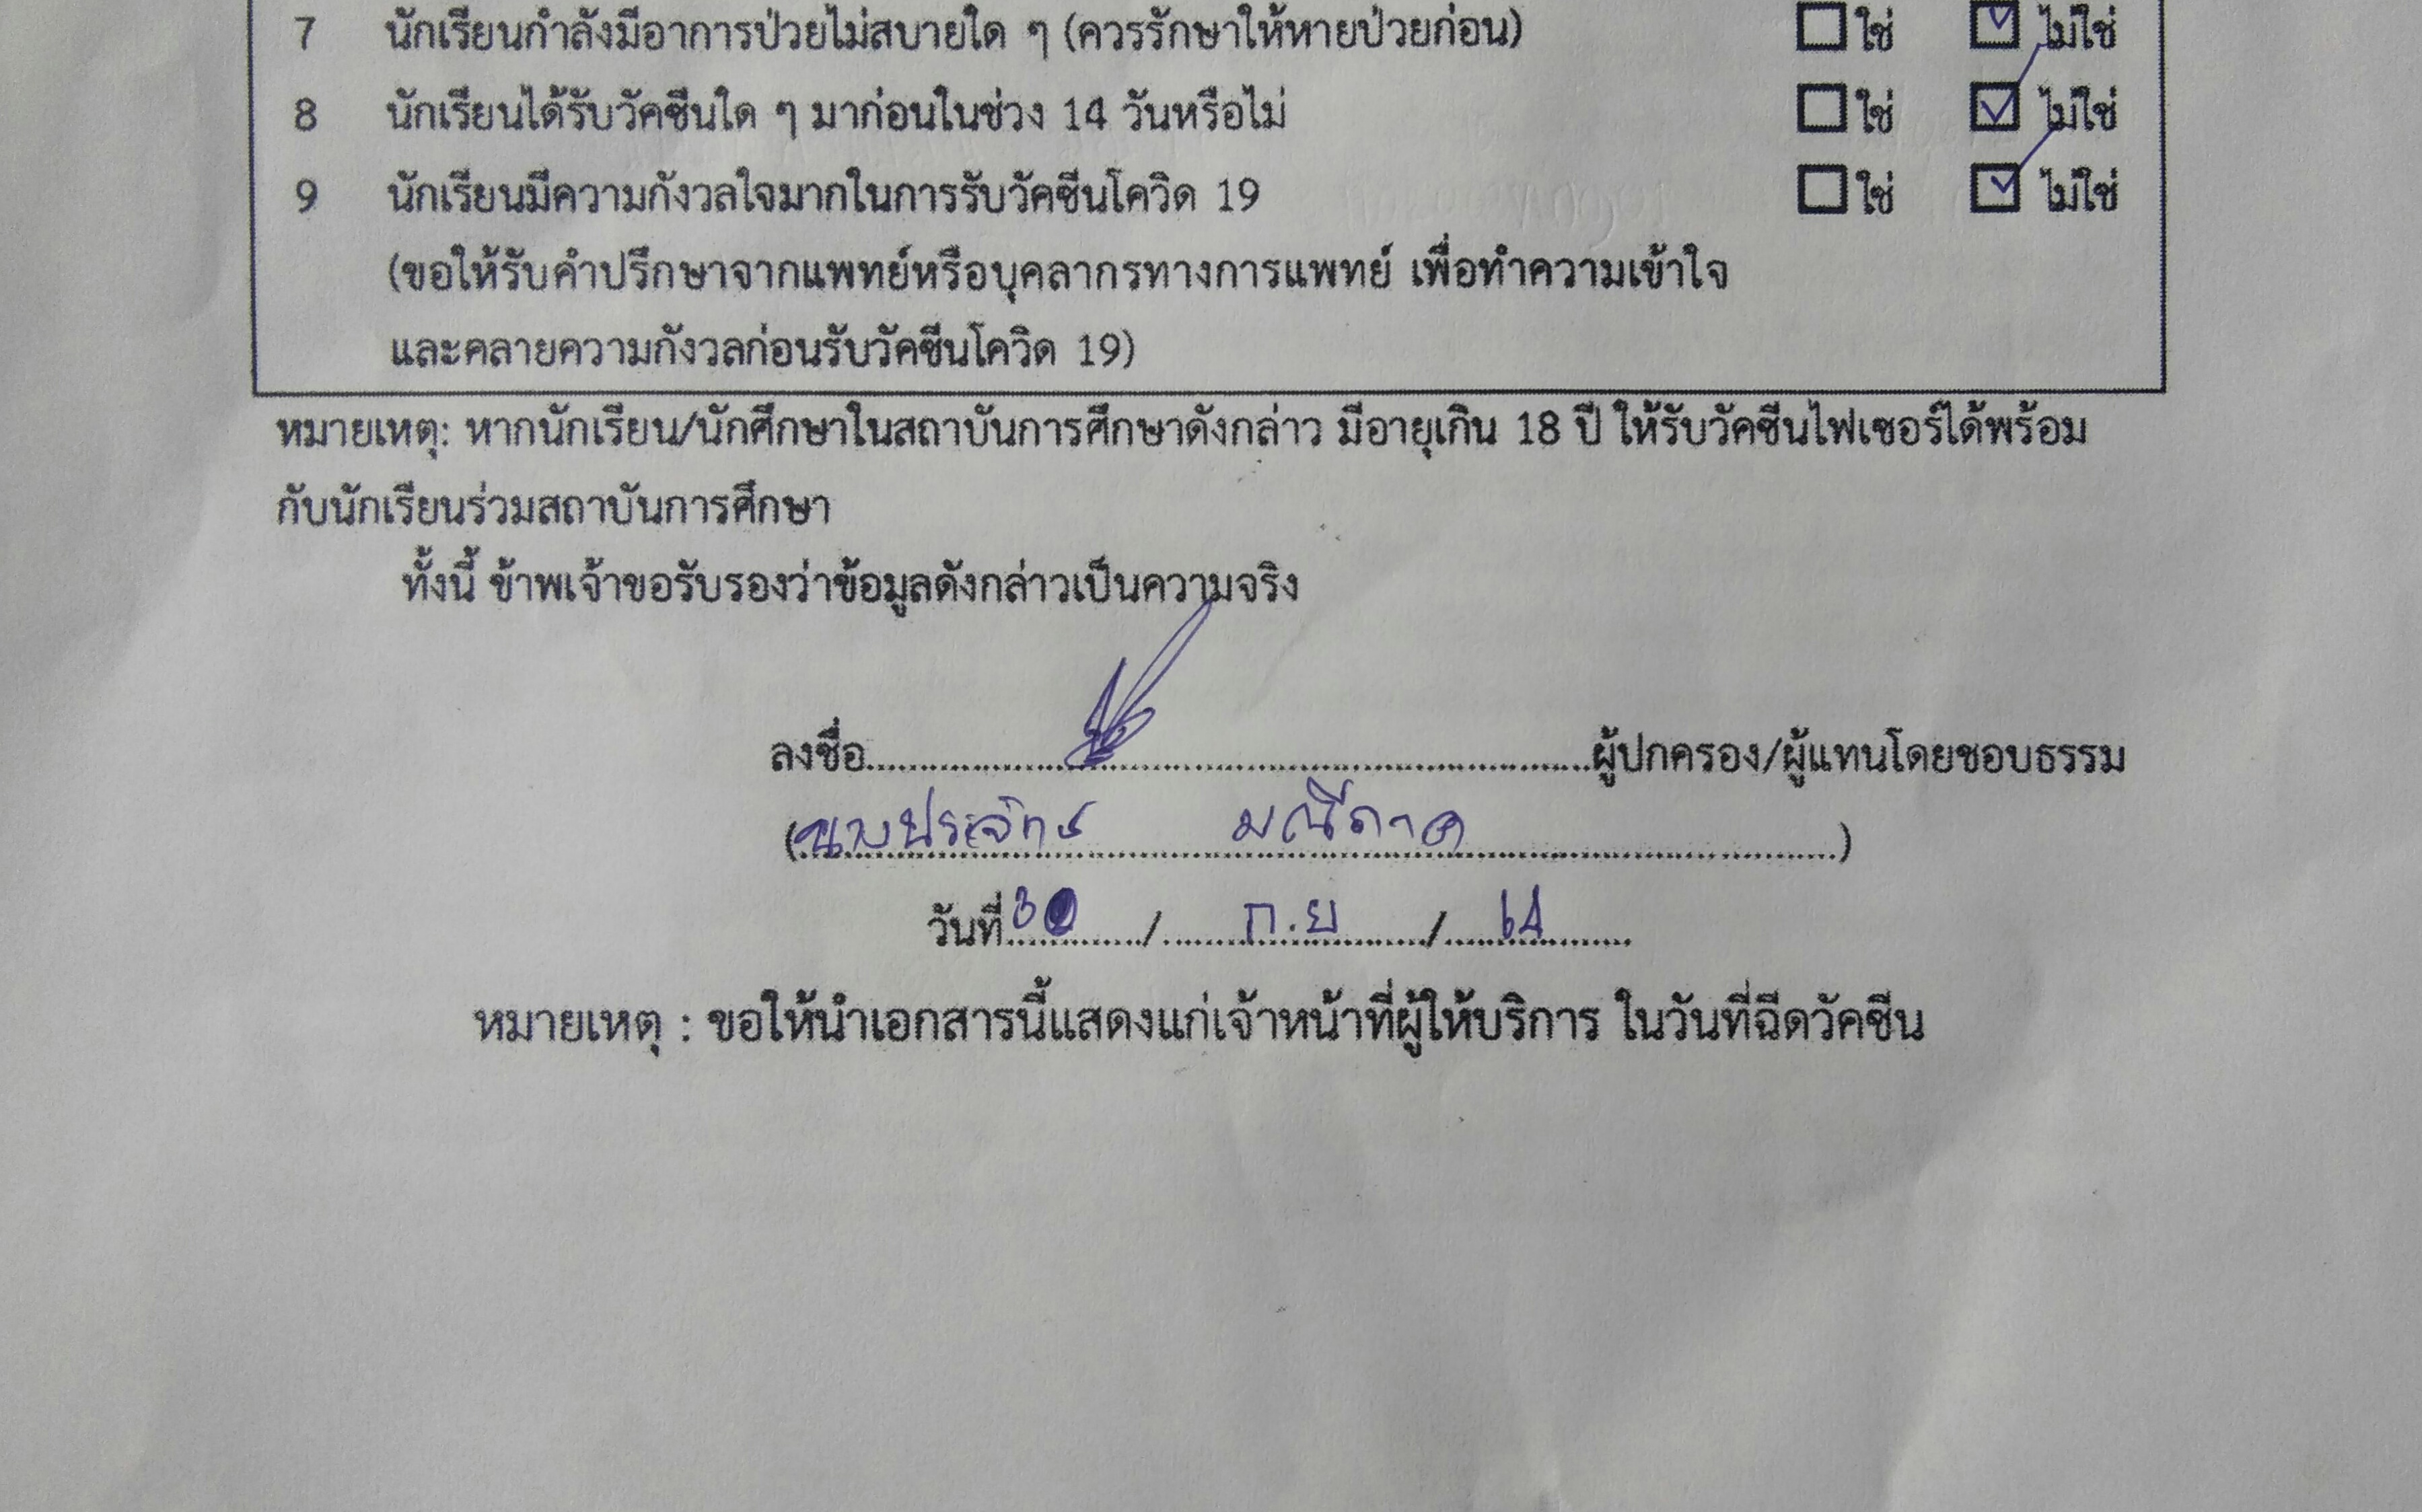 7 นักเรียนกำลังมีอาการป่วยไม่สบายใด ๆ (ควรรักษาให้หายป่วยก่อน) ☐ ใช่ ☑ ไม่ใช่
8 นักเรียนได้รับวัคซีนใด ๆ มาก่อนในช่วง 14 วันหรือไม่ ☐ ใช่ ☑ ไม่ใช่
9 นักเรียนมีความกังวลใจมากในการรับวัคซีนโควิด 19 ☐ ใช่ ☑ ไม่ใช่
(ขอให้รับคำปรึกษาจากแพทย์หรือบุคลากรทางการแพทย์ เพื่อทำความเข้าใจ
และคลายความกังวลก่อนรับวัคซีนโควิด 19)
หมายเหตุ: หากนักเรียน/นักศึกษาในสถาบันการศึกษาดังกล่าว มีอายุเกิน 18 ปี ให้รับวัคซีนไฟเซอร์ได้พร้อม
กับนักเรียนร่วมสถาบันการศึกษา
ทั้งนี้ ข้าพเจ้าขอรับรองว่าข้อมูลดังกล่าวเป็นความจริง
ลงชื่อ..........ผู้ปกครอง/ผู้แทนโดยชอบธรรม
(นางประจักษ์ มณีภาค)
วันที่ 30 / ก.ย / 64
หมายเหตุ : ขอให้นำเอกสารนี้แสดงแก่เจ้าหน้าที่ผู้ให้บริการ ในวันที่ฉีดวัคซีน